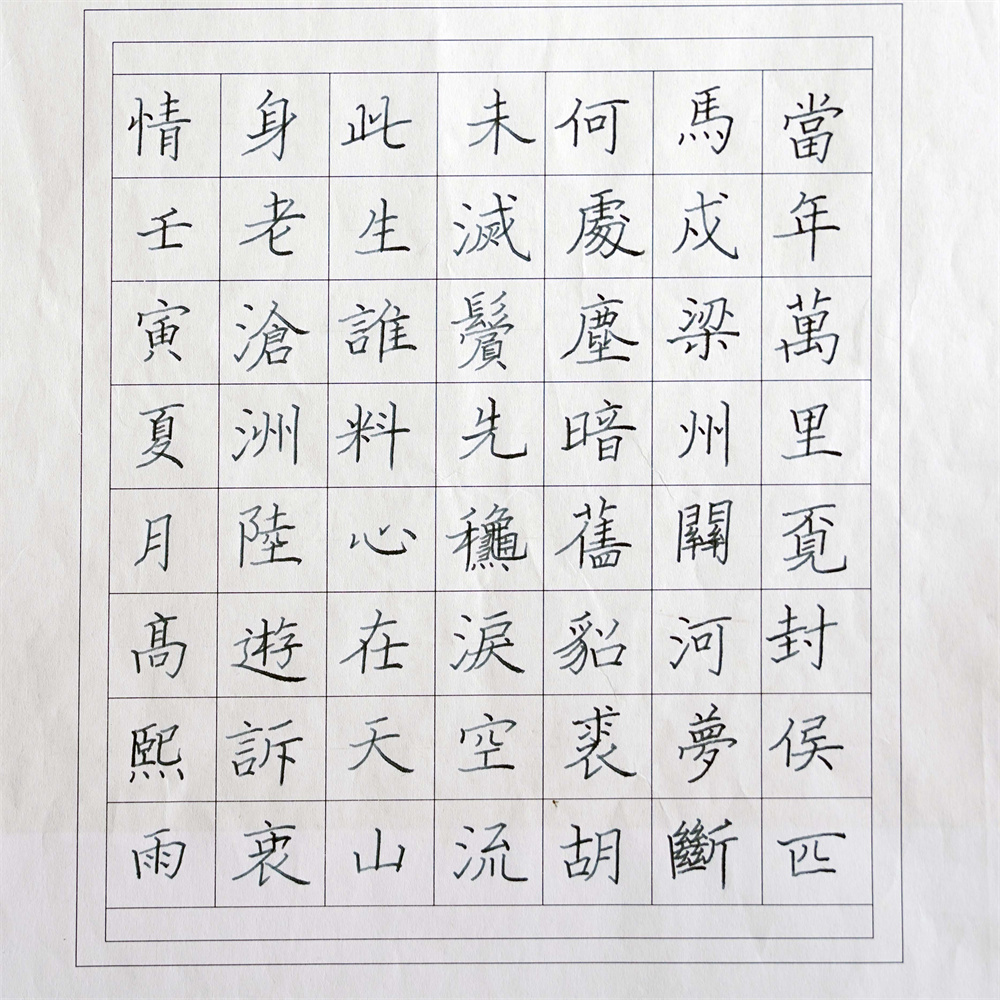 當年萬里覔封侯匹
馬戍梁州關河夢斷
何處塵暗舊貂裘胡
未滅鬢先龝淚空流
此生誰料心在天山
身老滄洲陸遊訴衷
情壬寅夏月髙熙雨